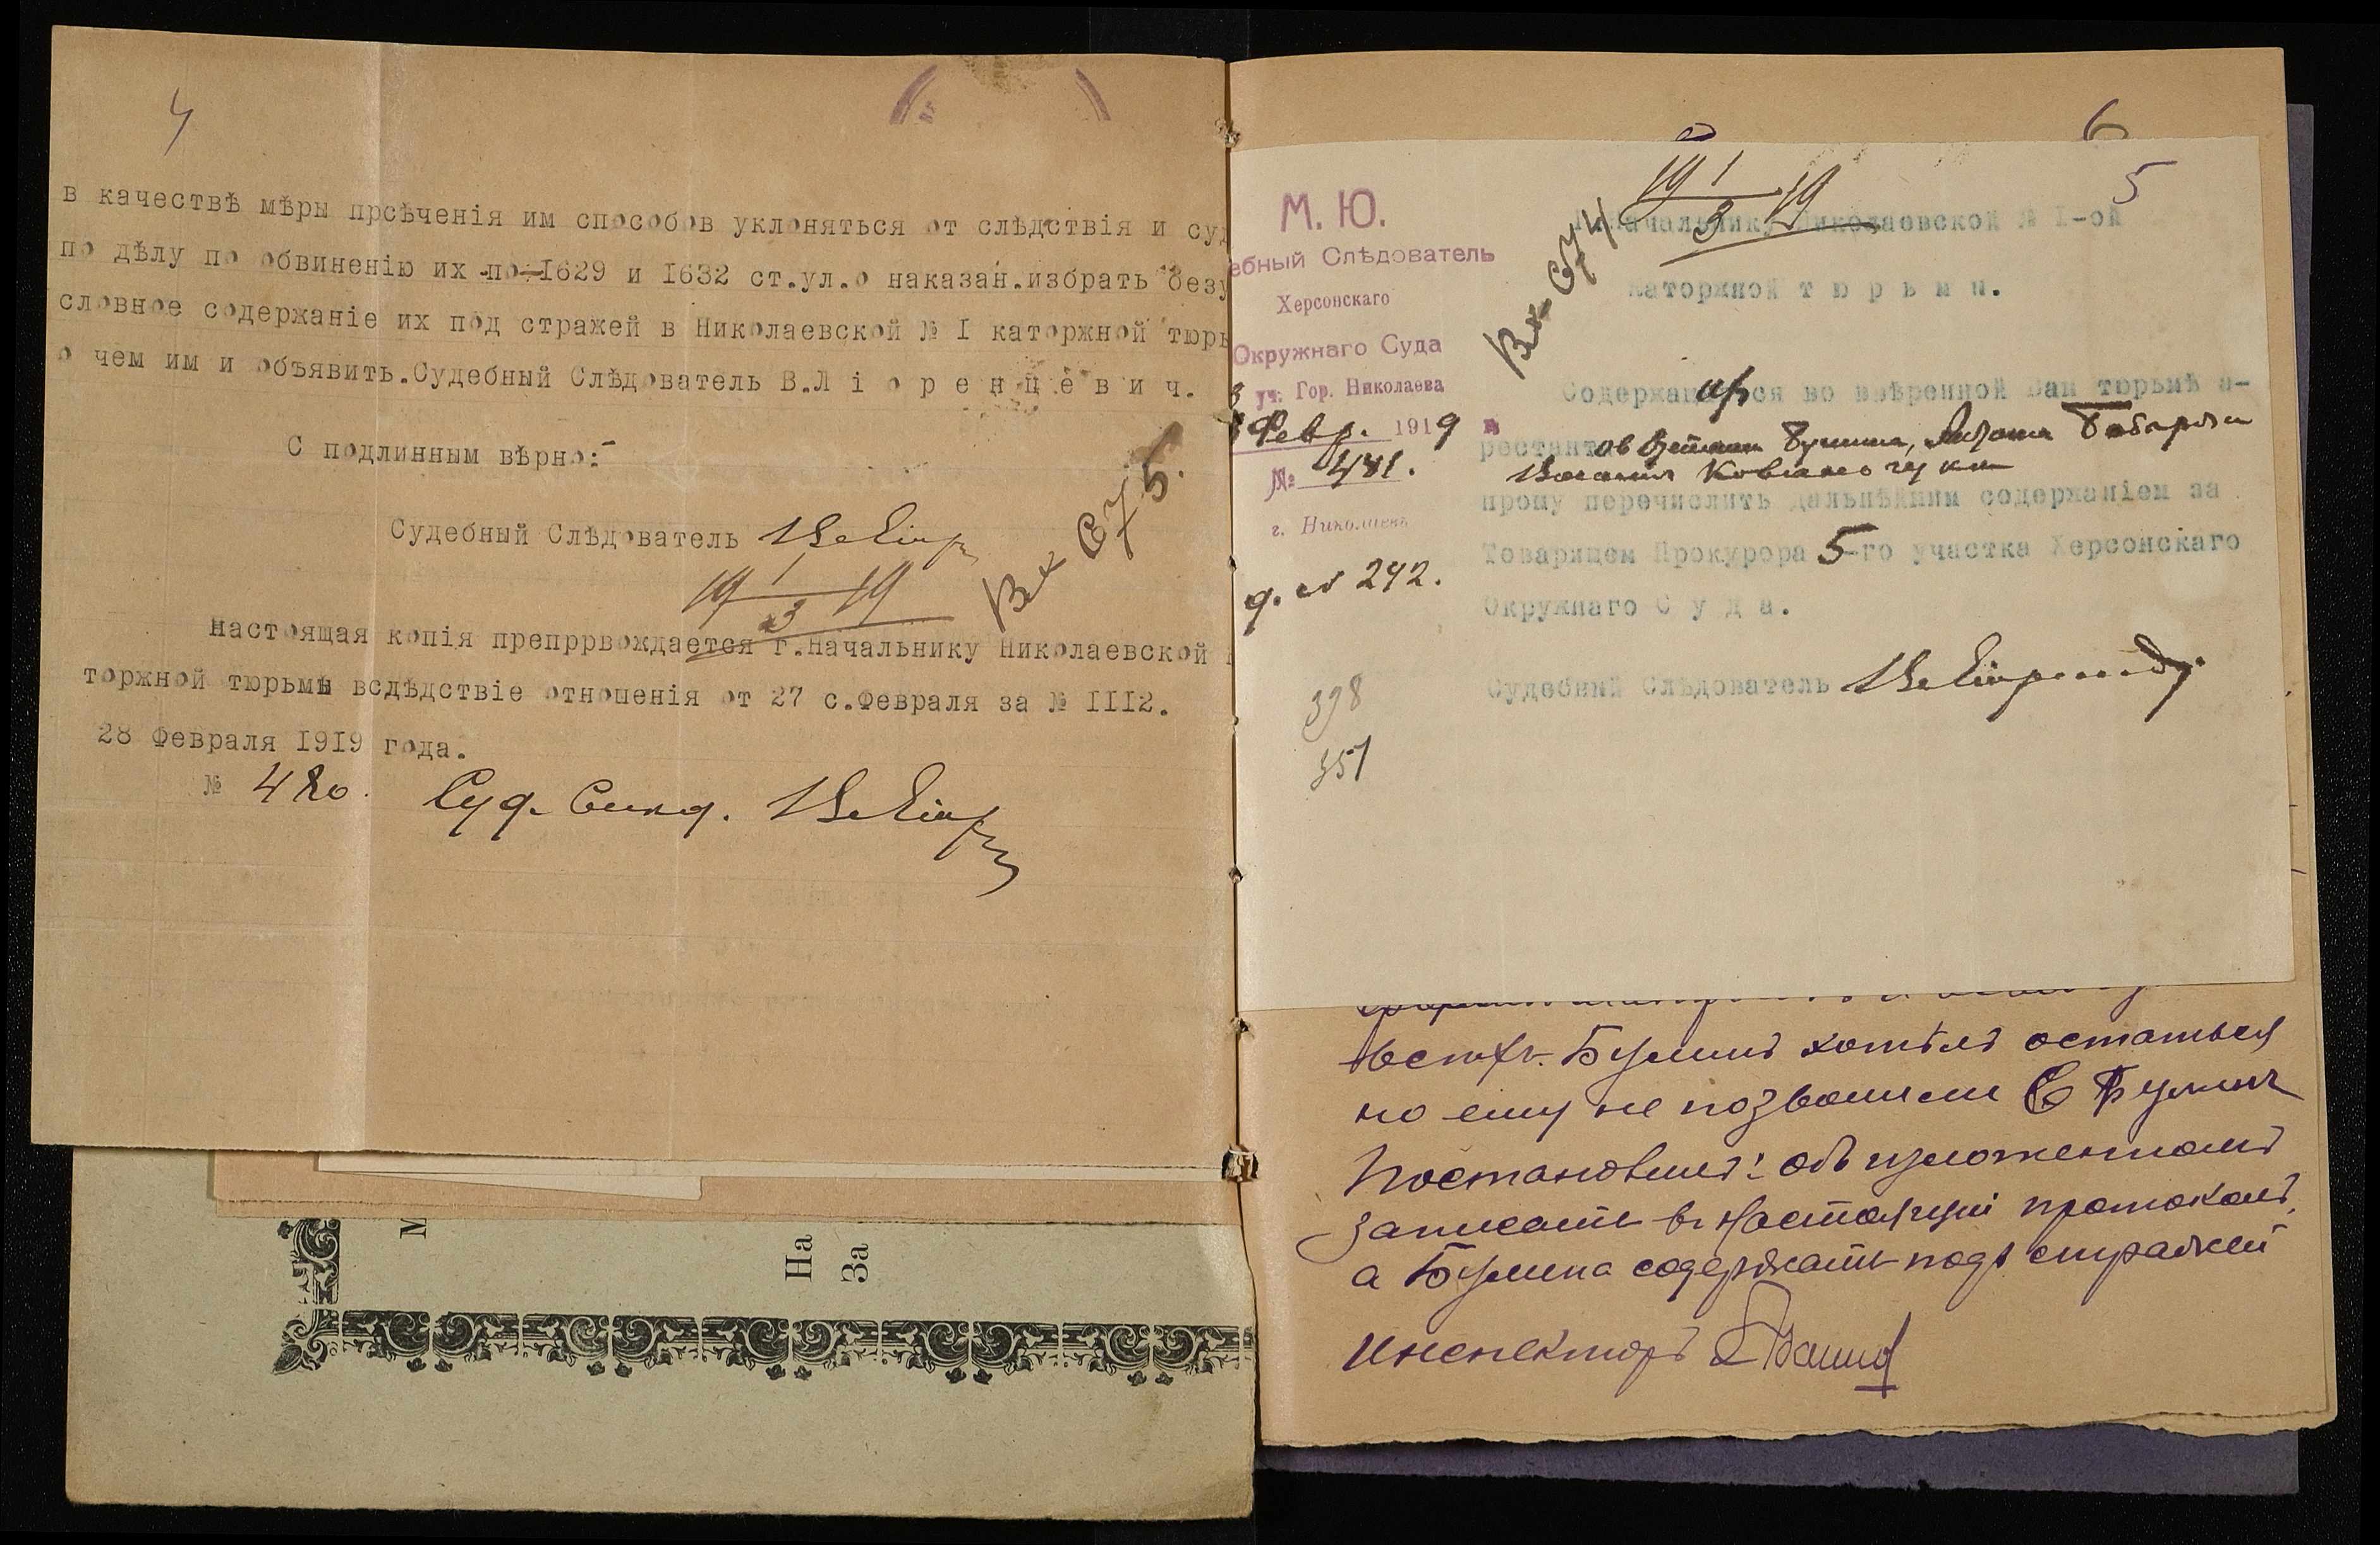 4
в качествѣ мѣры прсѣченія им способов уклоняться от слѣдствія и суд
по дѣлу по обвиненію их по 1629 и 1632 ст.ул.о наказан.избрать безу
словное содержаніе их под стражей в Николаевской № I каторжной тюрь
о чем им и объявить.Судебный Слѣдователь В.Л і о р е н ц е в и ч.
С подлинным вѣрно:
Судебный Слѣдователь
19 1/3 19
Вх 675.
Настоящая копія препррвождается г.Начальнику Николаевской
торжной тюрьмы вслѣдствіе отношенія от 27 с.Февраля за № III2.
28 Февраля 1919 года.
№ 480.
Суд. Слѣд.
М
На
За
6
5
М. Ю.
ебный Слѣдователь
Херсонскаго
Окружнаго Суда
3 уч. Гор. Николаева
Февр. 1919
№ 481.
г. Николаевъ
д. № 242.
398
351
19 1/3 19
Вх 674
Начальнику Николаевской № I-ой
каторжной т ю р ь м ы.
Содержащихся во ввѣренной Вам тюрьмѣ а-
рестантов Бушина,
прошу перечислить дальнѣйшим содержаніем за
Товарищем Прокурора 5-го участка Херсонскаго
Окружнаго С у д а.
Судебный Слѣдователь
хотѣлъ остаться
но ему не позволили
Постановилъ: объ изложенномъ
записать въ настоящій протоколъ,
а содержать подъ стражей
Инспекторъ